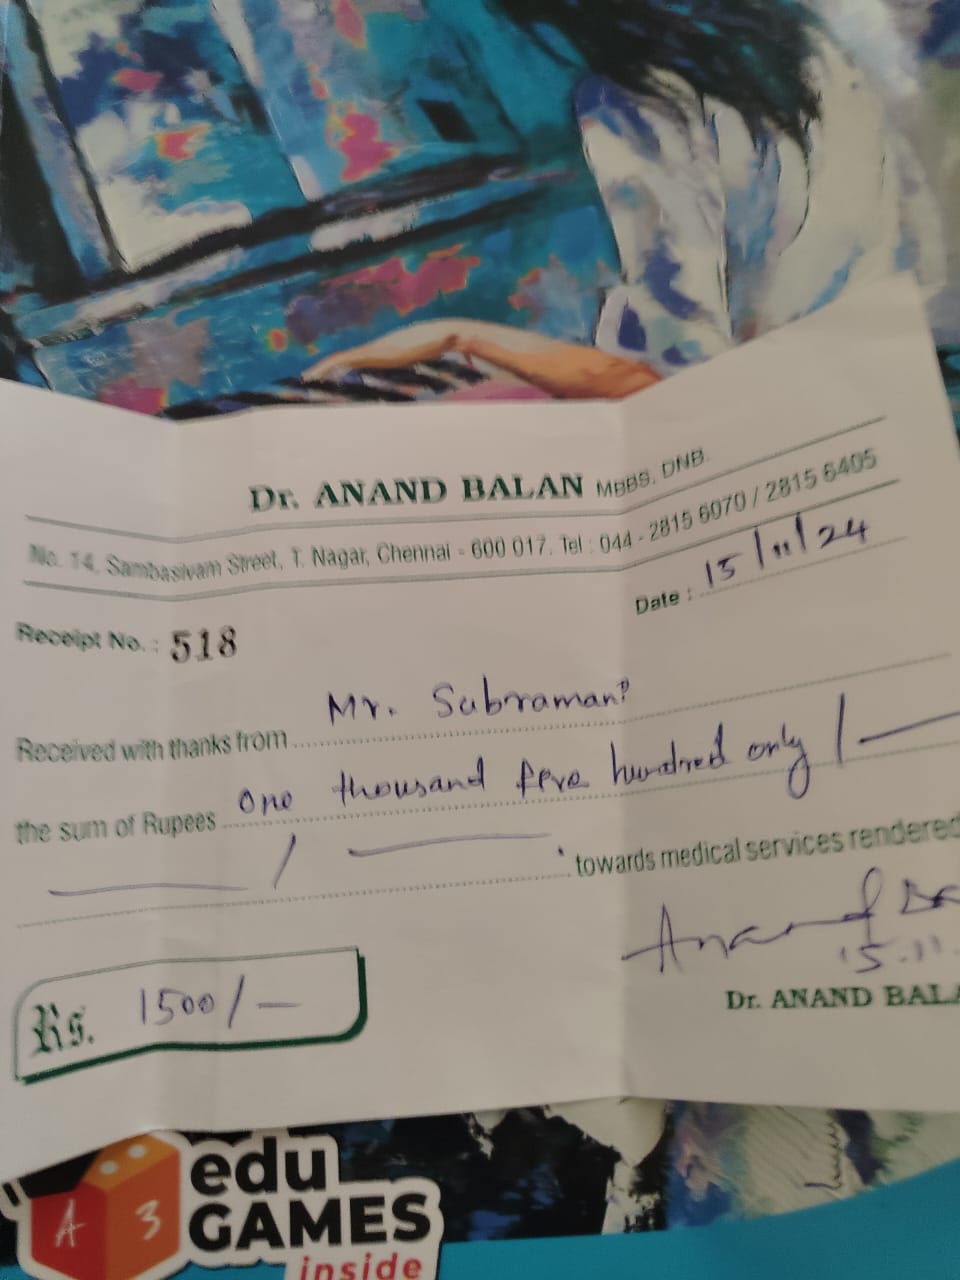 Dr. ANAND BALAN MBBS, DNB.
No. 14, Sambasivam Street, T. Nagar, Chennai - 600 017. Tel : 044 - 2815 6070 / 2815 6405
Date : 15/11/24
Receipt No. : 518
Received with thanks from Mr. Subramani
the sum of Rupees One thousand five hundred only /—
— / — towards medical services rendered
Anand Ba
15.11.
Dr. ANAND BALA
Rs. 1500/—
A 3
edu
GAMES
inside